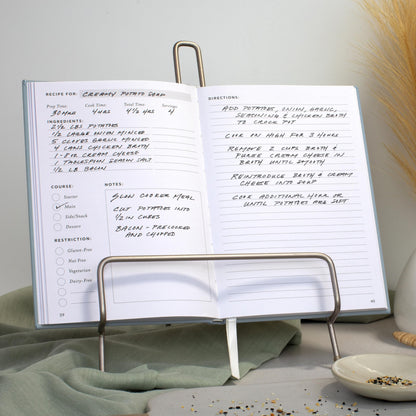 RECIPE FOR: CREAMY POTATO SOUP
Prep Time: Cook Time: Total Time: Servings:
30 MIN 4 HRS 4½ HRS 4
INGREDIENTS:
2½ LBS POTATOES
½ LARGE ONION MINCED
5 CLOVES GARLIC MINCED
4 CANS CHICKEN BROTH
1 - 8 OZ CREAM CHEESE
1 TABLESPOON SEASON SALT
½ LB BACON
COURSE:
Starter
Main
Side/Snack
Dessert
RESTRICTION:
Gluten-Free
Nut-Free
Vegetarian
Dairy-Free
NOTES:
SLOW COOKER MEAL
CUT POTATOES INTO
½ IN CUBES
BACON - PRECOOKED
AND CHOPPED
DIRECTIONS:
ADD POTATOES, ONION, GARLIC,
SEASONING & CHICKEN BROTH
TO CROCK POT
COOK ON HIGH FOR 3 HOURS
REMOVE 2 CUPS BROTH &
PUREE CREAM CHEESE IN
BROTH UNTIL SMOOTH
REINTRODUCE BROTH & CREAMY
CHEESE INTO SOUP
COOK ADDITIONAL HOUR OR
UNTIL POTATOES ARE SOFT